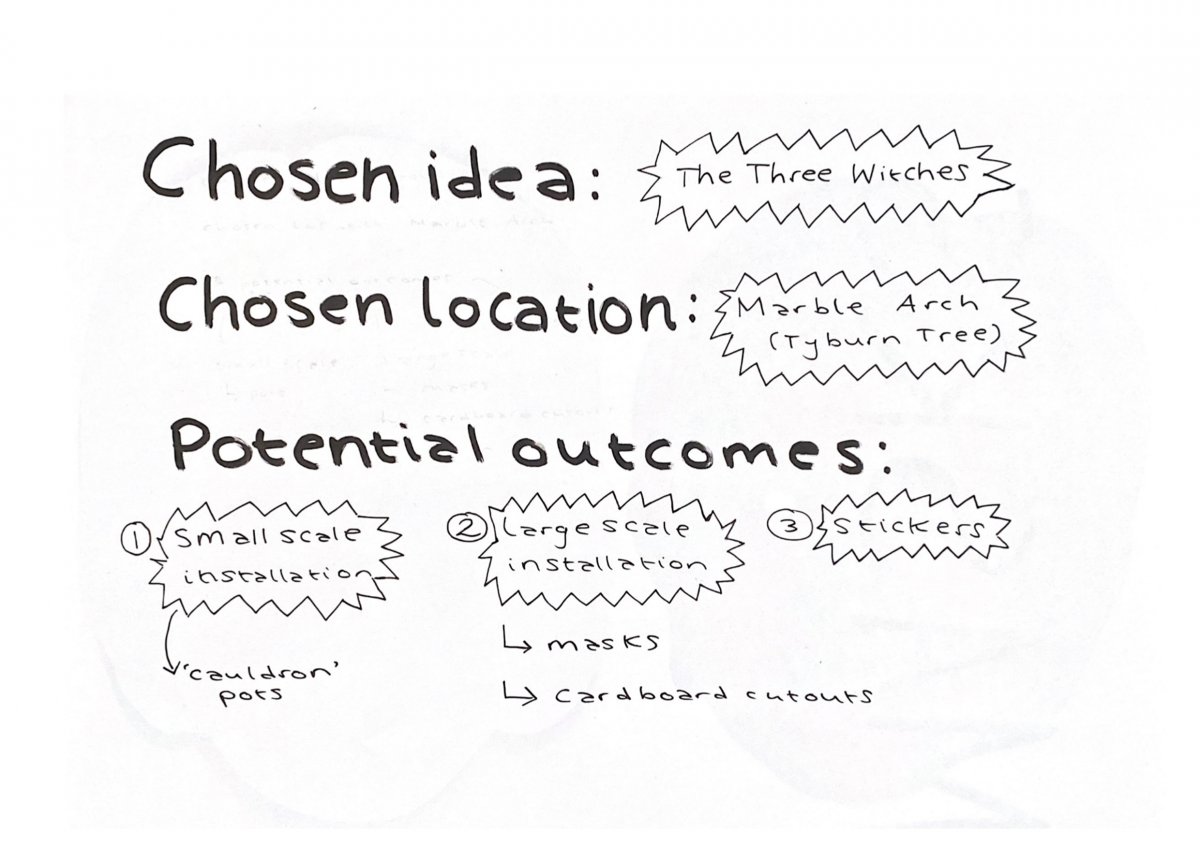 Chosen idea: The Three Witches
Chosen location: Marble Arch
(Tyburn Tree)
Potential outcomes:
① Small scale
installation
'cauldron'
pots
② Large scale
installation
↳ masks
↳ cardboard cutouts
③ Stickers